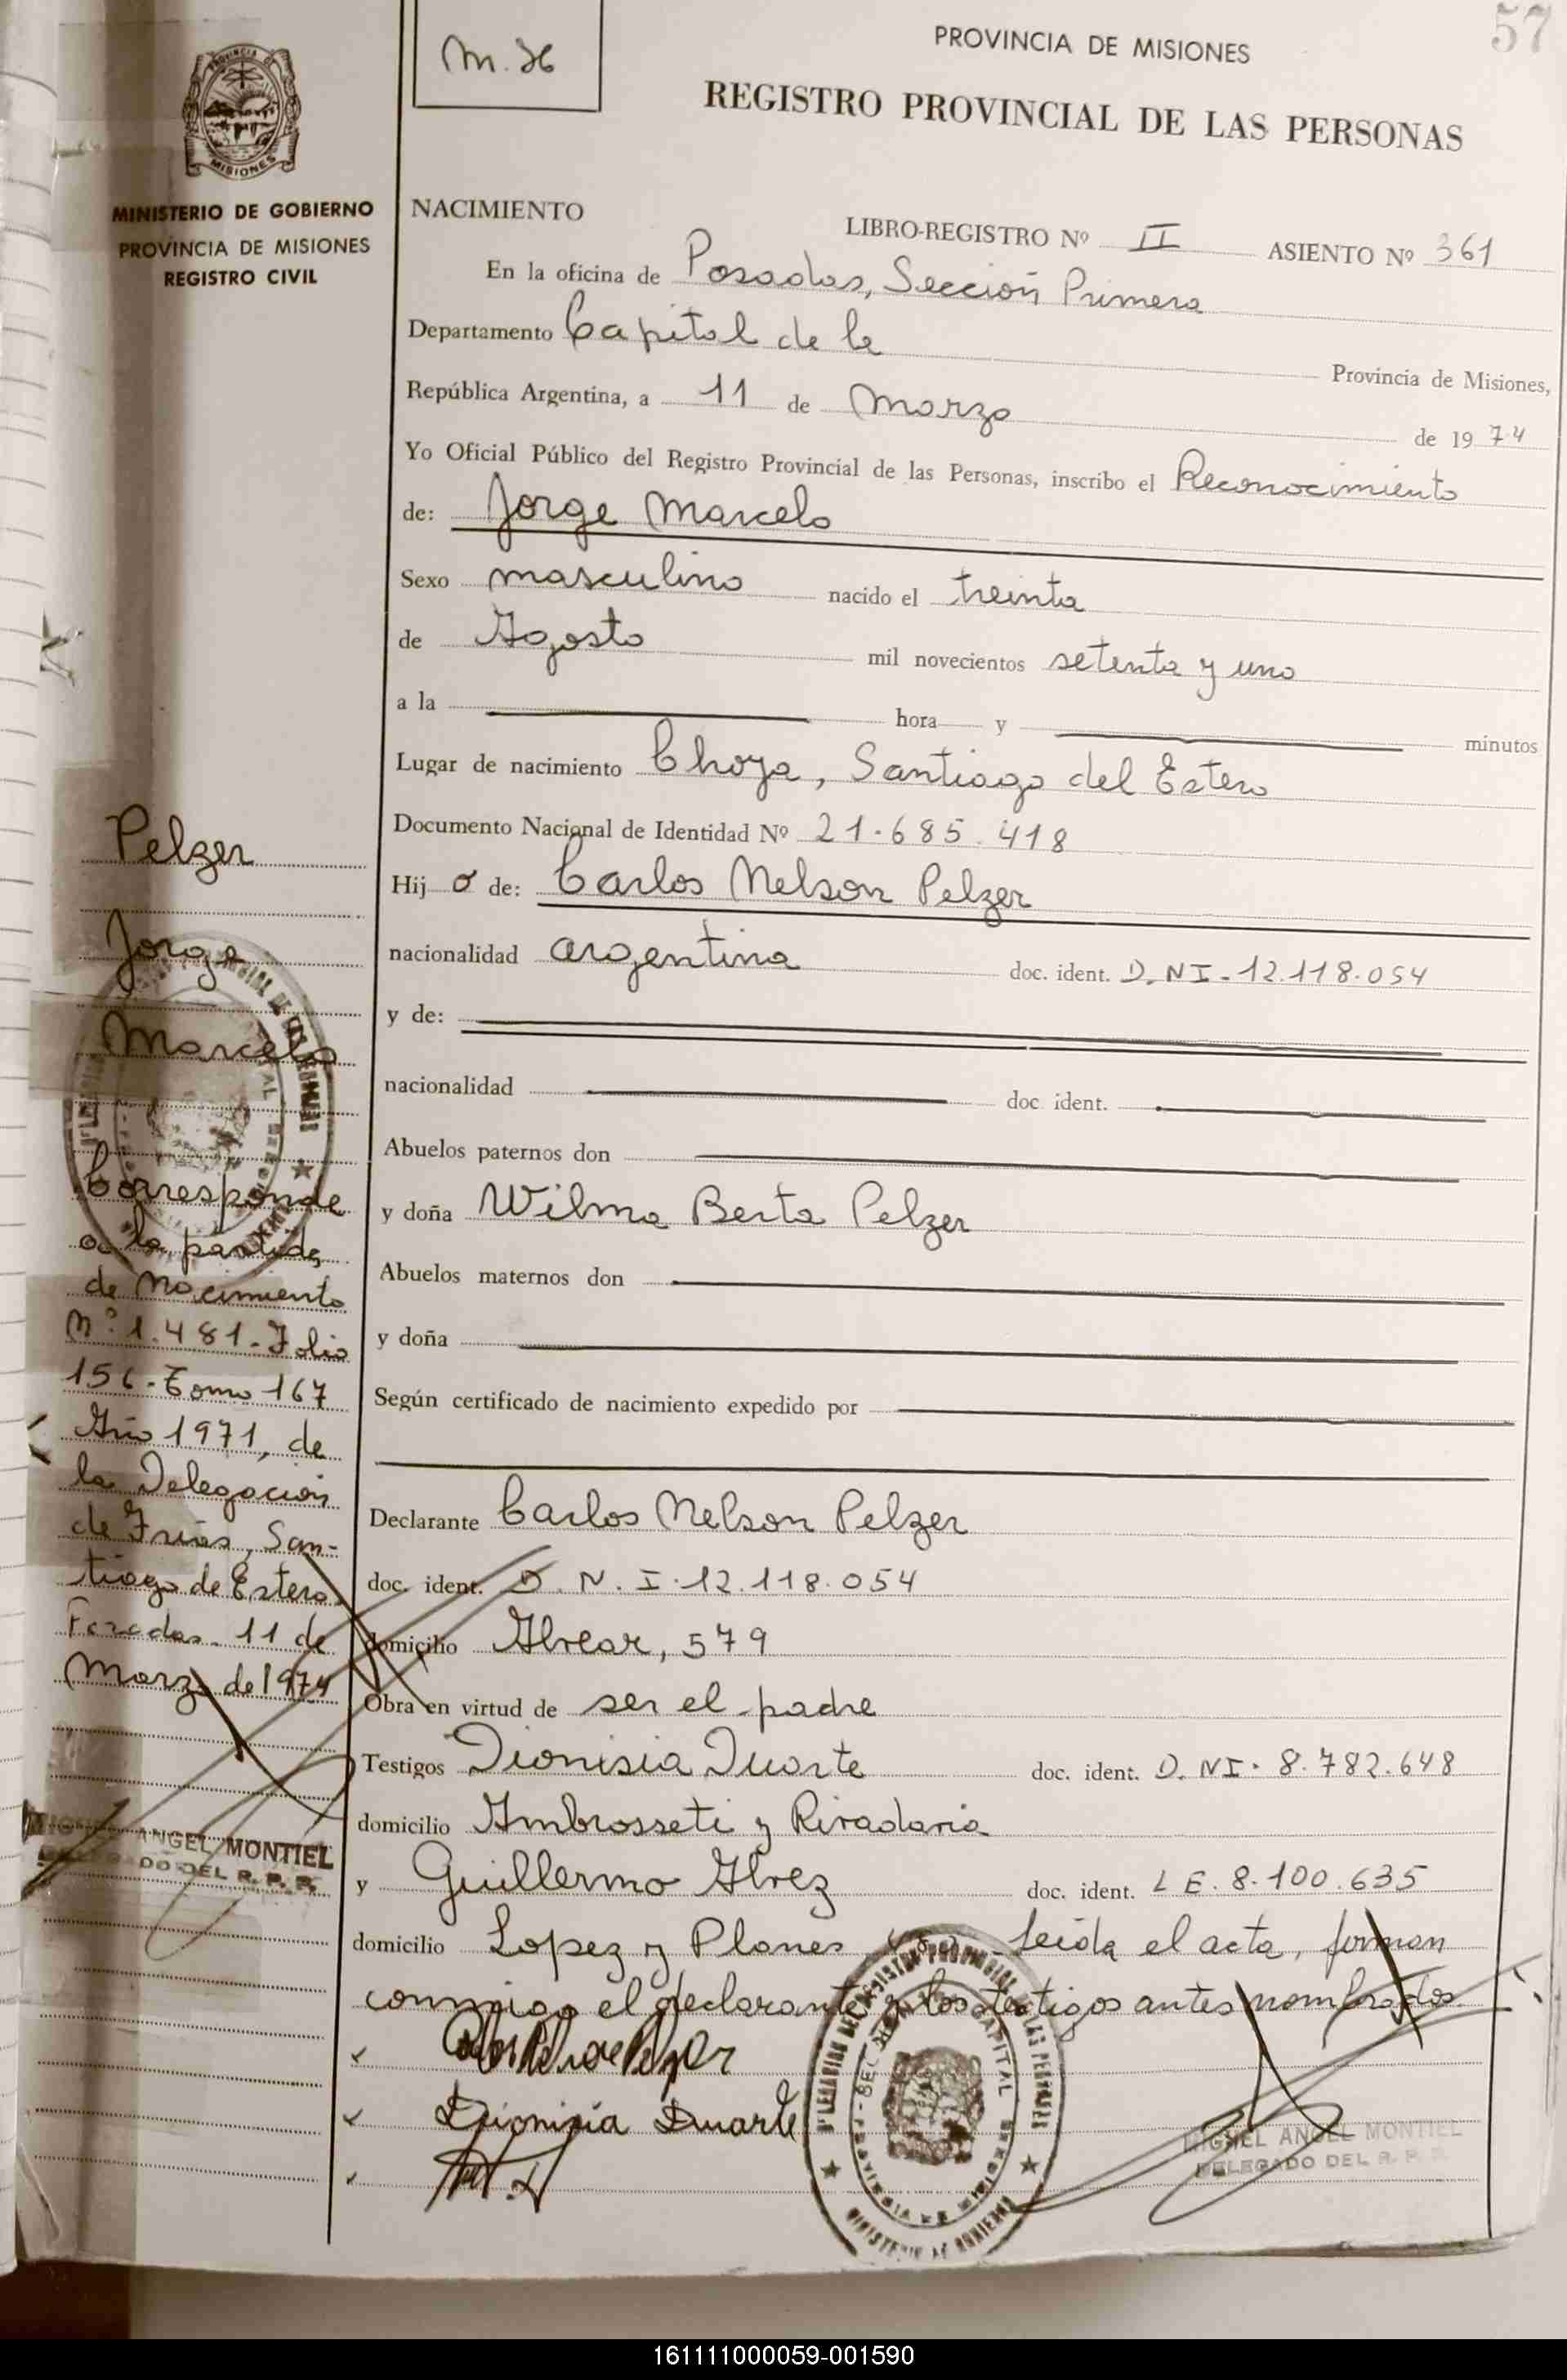 57
M. 36
PROVINCIA DE MISIONES
REGISTRO PROVINCIAL DE LAS PERSONAS
MISIONES
MINISTERIO DE GOBIERNO
PROVINCIA DE MISIONES
REGISTRO CIVIL
NACIMIENTO
LIBRO-REGISTRO Nº II ASIENTO Nº 361
En la oficina de Posadas, Sección Primera
Departamento Capital de la Provincia de Misiones,
República Argentina, a 11 de Marzo de 1974
Yo Oficial Público del Registro Provincial de las Personas, inscribo el Reconocimiento
de: Jorge Marcelo
Sexo masculino nacido el treinta
de Agosto mil novecientos setenta y uno
a la hora y minutos
Lugar de nacimiento Choya, Santiago del Estero
Documento Nacional de Identidad Nº 21.685.418
Hijo de: Carlos Nelson Pelzer
nacionalidad argentina doc. ident. D.NI-12.118.054
y de:
nacionalidad doc. ident.
Abuelos paternos don
y doña Wilma Berta Pelzer
Abuelos maternos don
y doña
Según certificado de nacimiento expedido por
Declarante Carlos Nelson Pelzer
doc. ident. D.N.I.12.118.054
domicilio Alvear, 579
Obra en virtud de ser el padre
Testigos Dionisia Duarte doc. ident. D.NI. 8.782.648
domicilio Ambrosseti y Rivadavia
y Guillermo Alvez doc. ident. L E. 8.100.635
domicilio Lopez y Planes leída el acta, firman
conmigo el declarante y los testigos antes nombrados.
Dionisia Duarte
MIGUEL ANGEL MONTIEL
DELEGADO DEL R. P. P.
Pelzer
Jorge
Marcelo
Corresponde
a la partida
de Nacimiento
Nº 1.481-Folio
156-Tomo 167
Año 1971, de
la Delegación
de Frias, San-
tiago de Estero.
Posadas. 11 de
Marzo de 1974
MIGUEL ANGEL MONTIEL
DELEGADO DEL R. P. P.
161111000059-001590